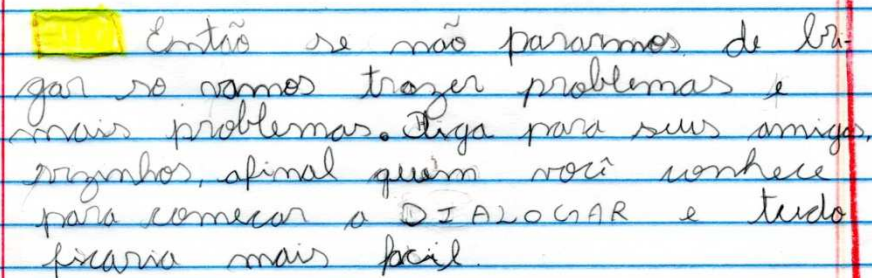 Então se não pararmos de bri-
gar so vamos trazer problemas e
mais problemas. Diga para seus amigos,
vizinhos, afinal quem você conhece
para comecar a DIALOGAR e tudo
ficaria mais facil.